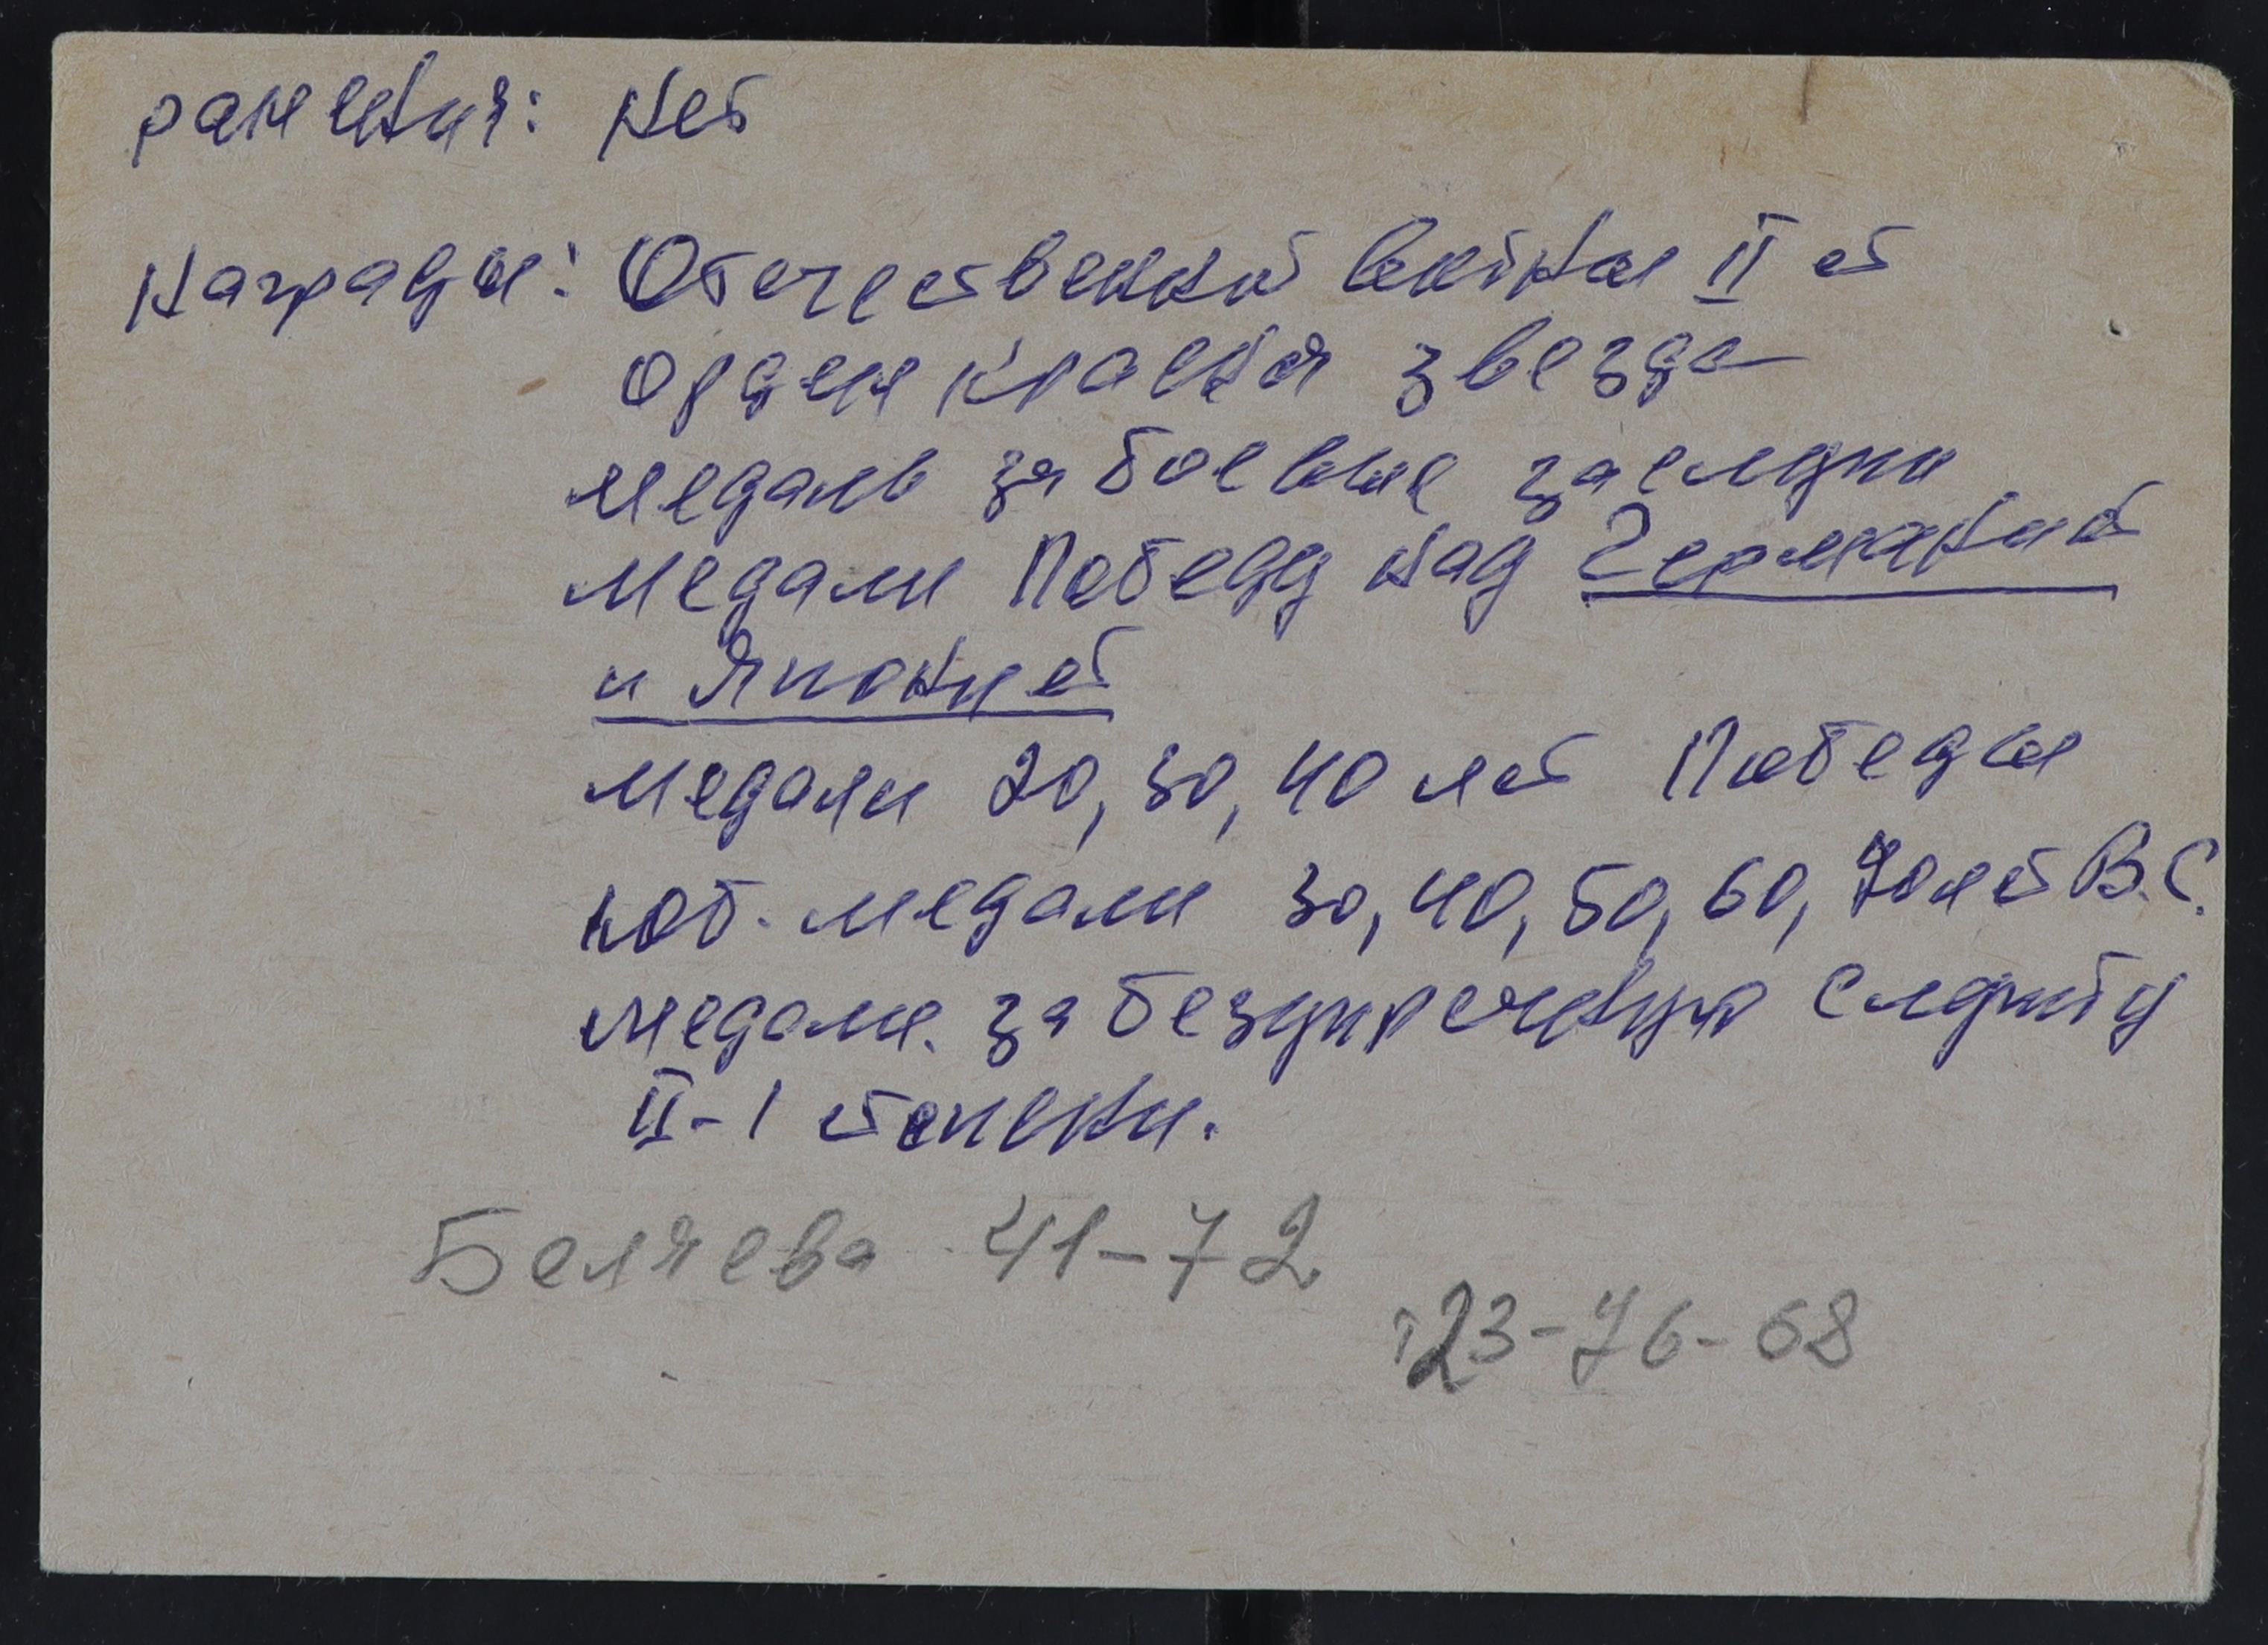 ранения: нет
награды: Отечественной войны II ст
орден Красная звезда
медаль за боевые заслуги
медали Победу над Германией
и Японией
медали 20, 30, 40 лет Победы
юб. медали 30, 40, 50, 60, 70 лет В.С.
медали. за безупречную службу
II-I степени.
Беляева 41-72
т23-76-68